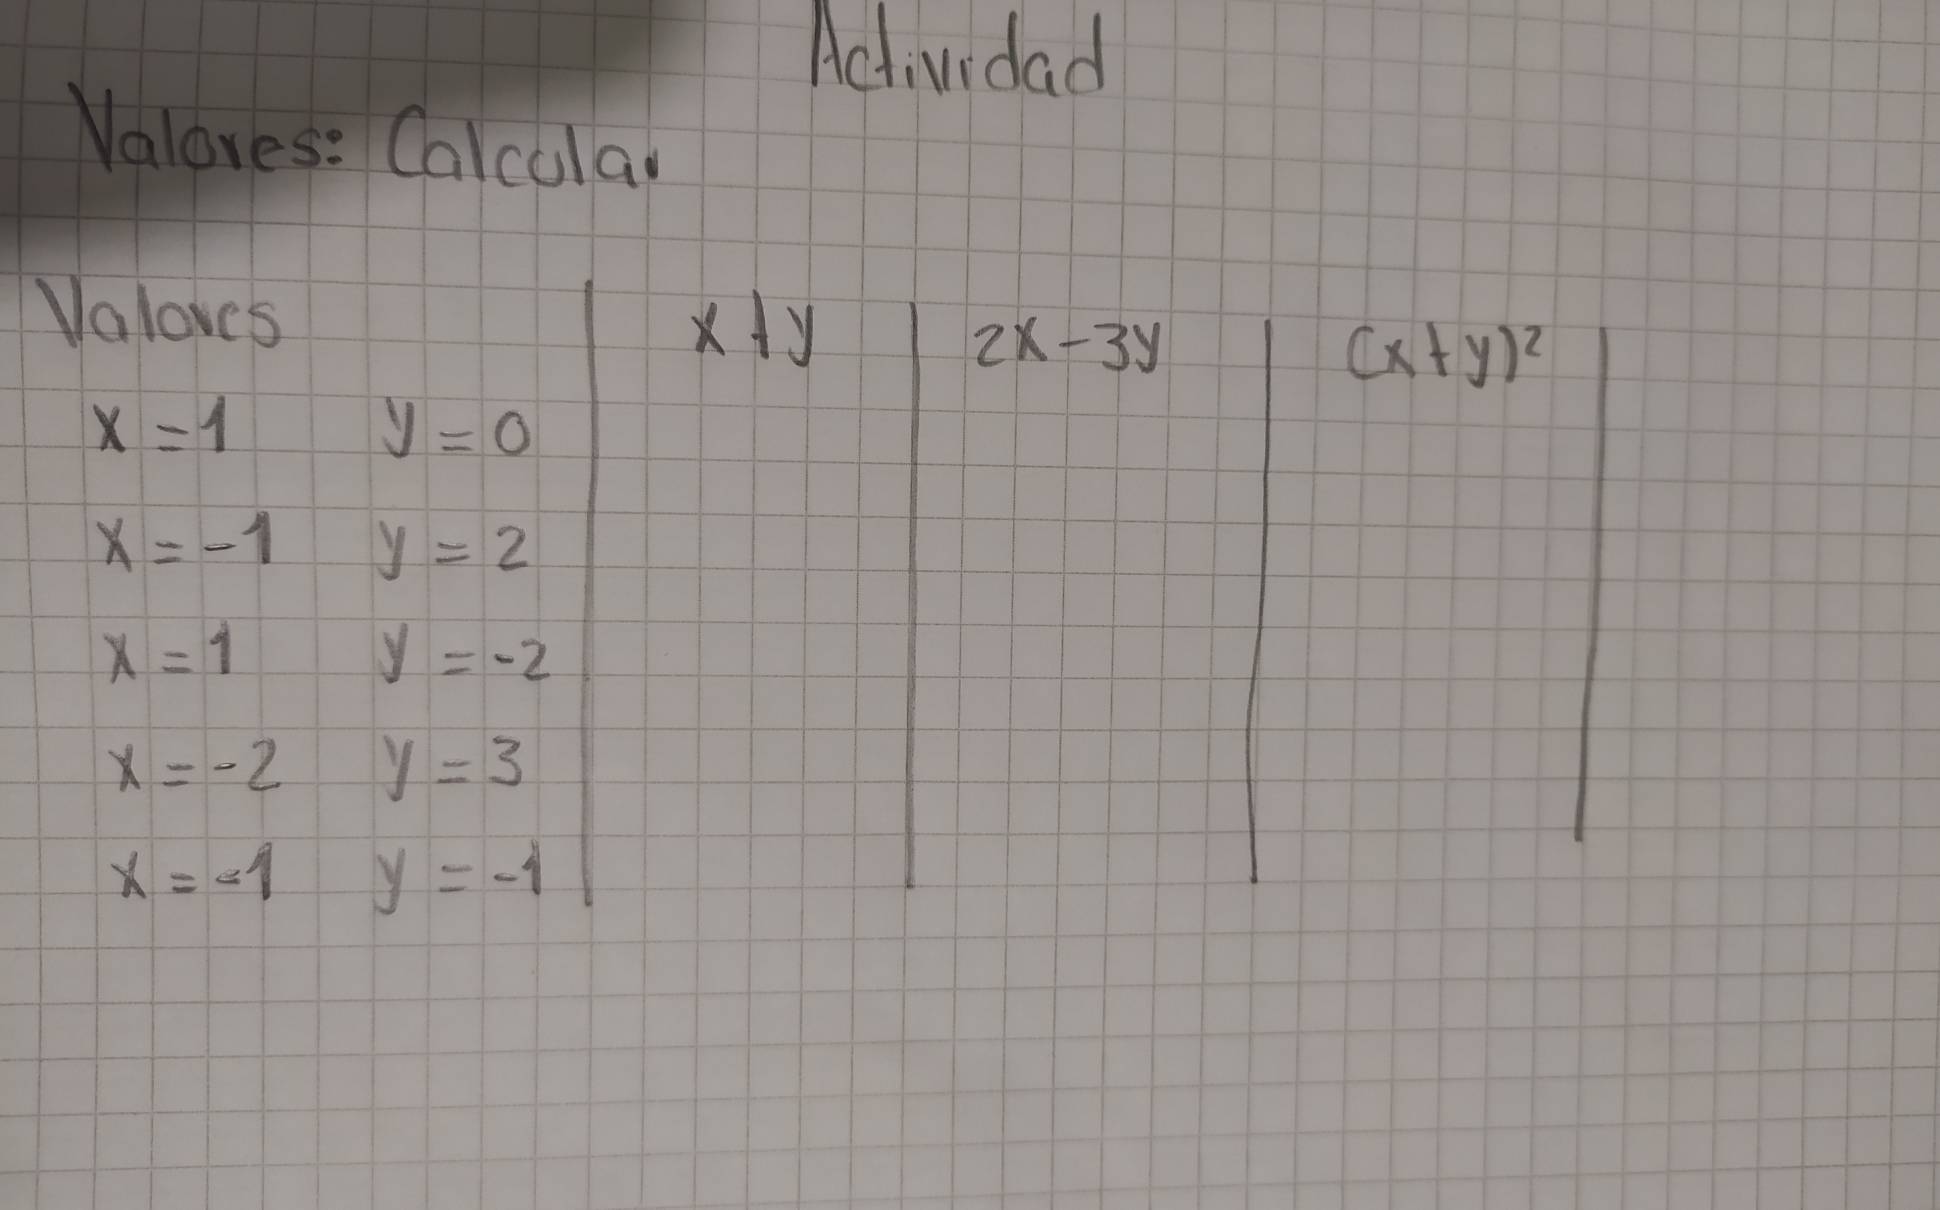 Actividad
Valores: Calcular
Valores x+y 2x-3y (x+y)²
x=1 y=0
x=-1 y=2
x=1 y=-2
x=-2 y=3
x=-1 y=-1